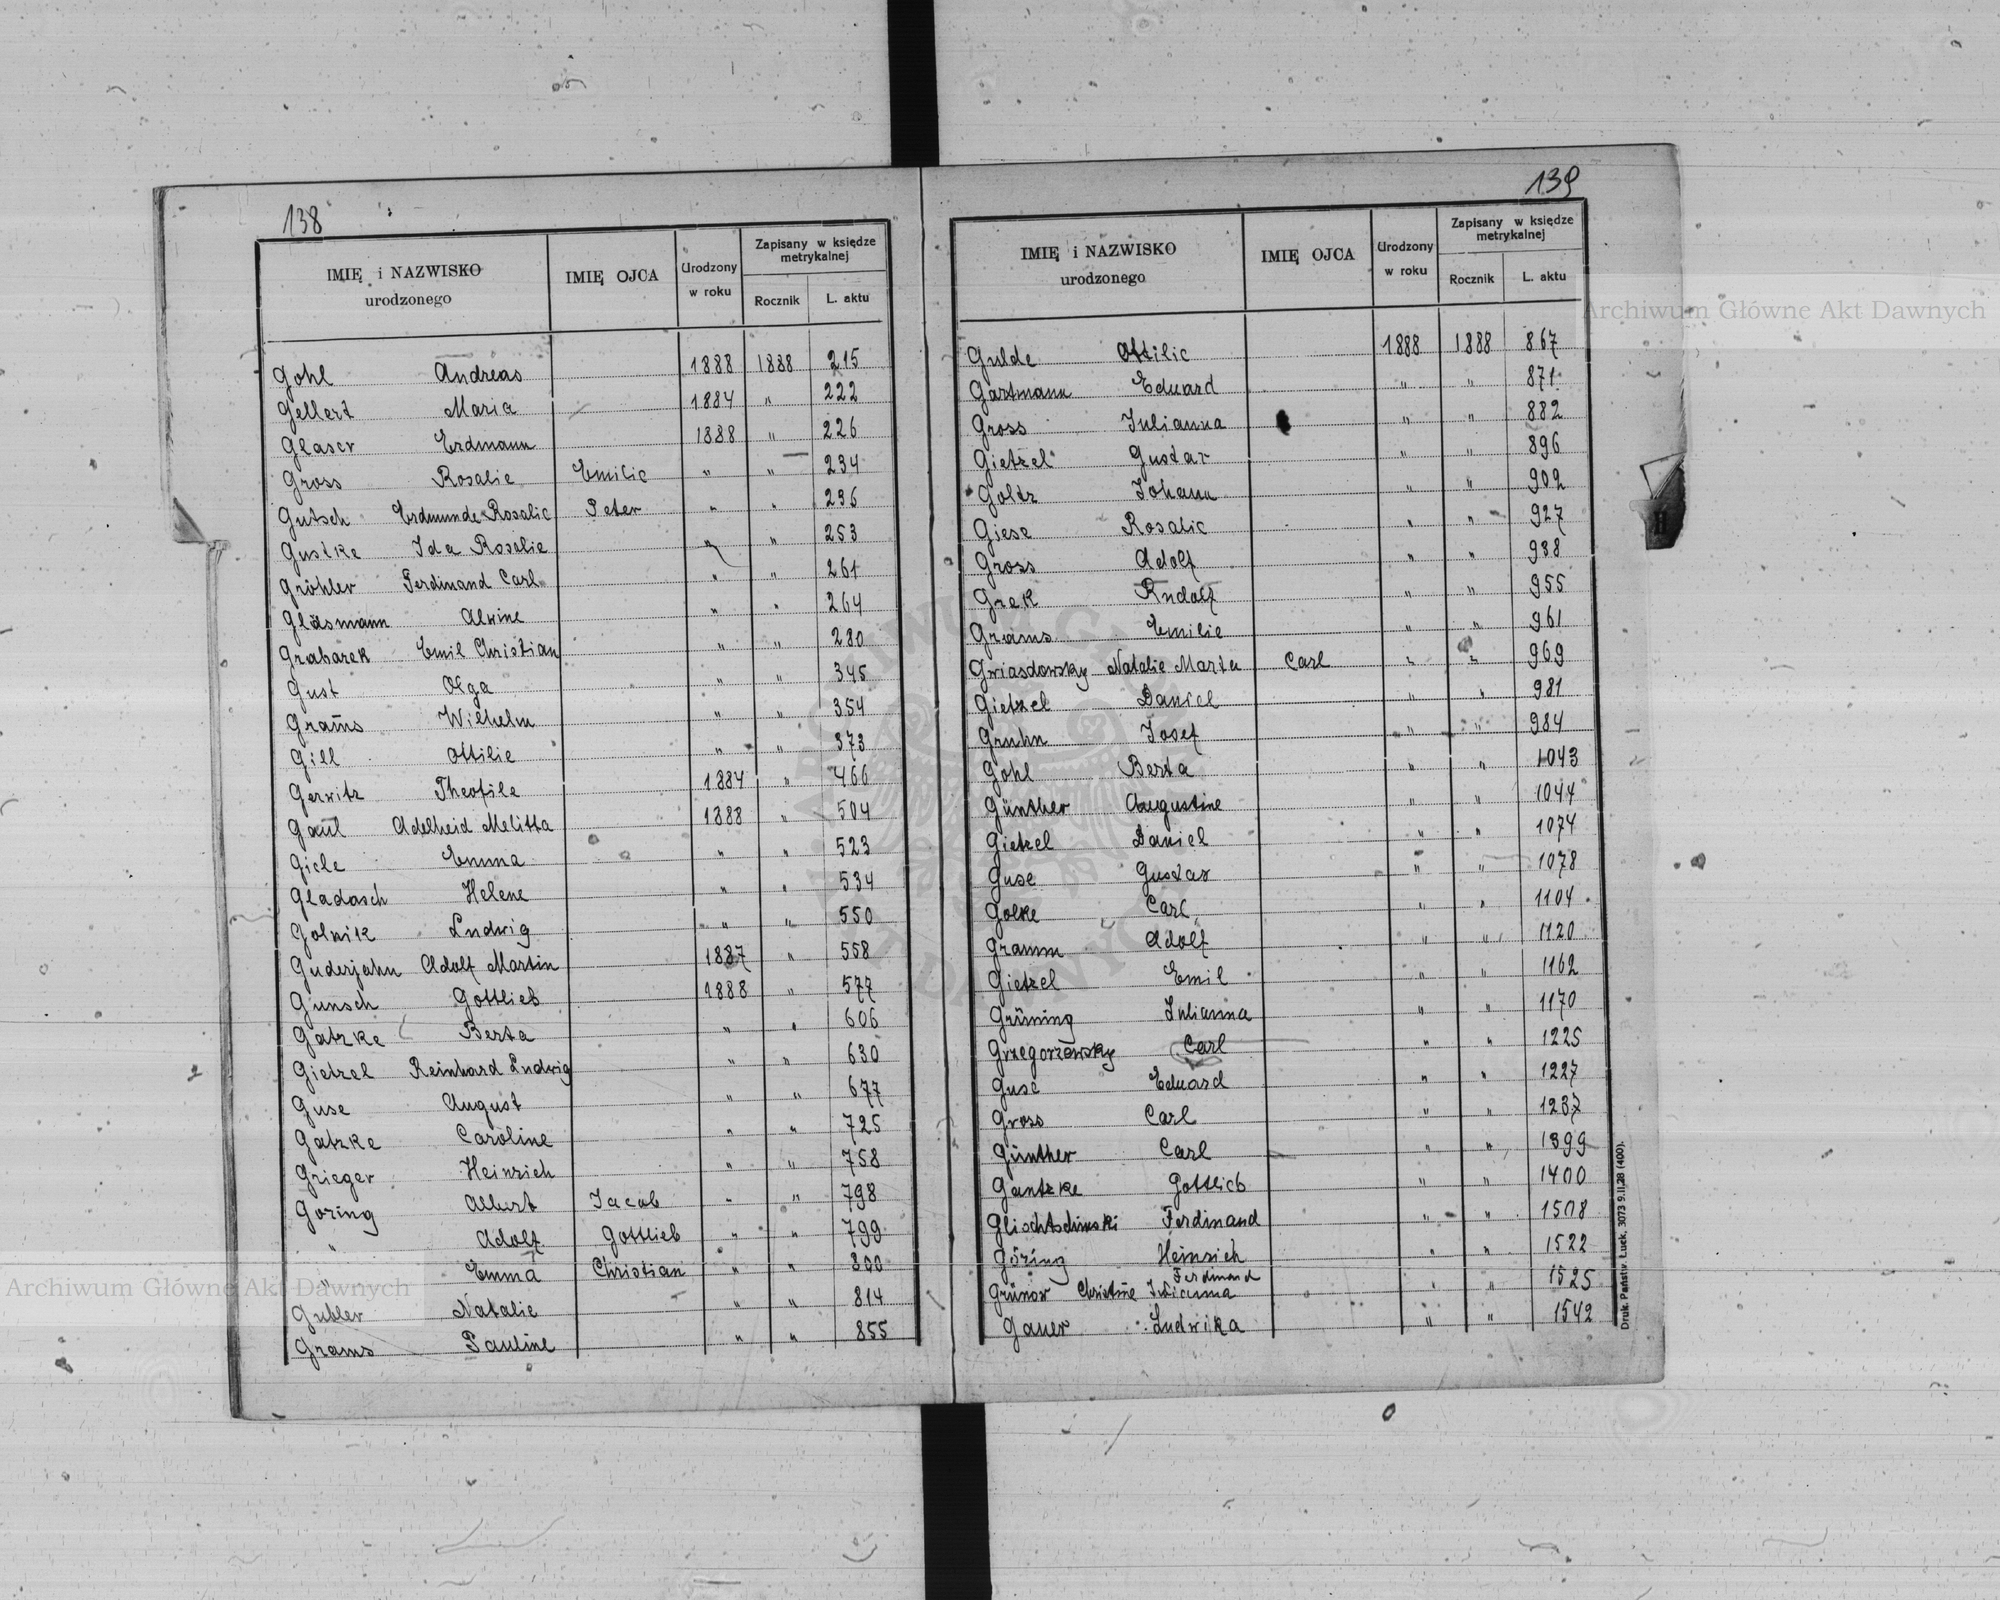 138
IMIĘ i NAZWISKO urodzonego IMIĘ OJCA Urodzony w roku Zapisany w księdze metrykalnej Rocznik L. aktu
Gohl Andreas 1888 1888 215
Gellert Maria 1884 " 222
Glaser Erdmann 1888 " 226
Gross Rosalie Emilie " " 234
Gutsch Erdmunde Rosalie Peter " " 236
Gustke Ida Rosalie " " 253
Gröhler Ferdinand Carl " " 261
Gläsmann Alwine " " 264
Grabarek Emil Christian " " 280
Gust Olga " " 345
Grams Wilhelm " " 354
Gill Ottilie " " 373
Gerwitz Theofile 1884 " 466
Gaul Adelheid Melitta 1888 " 504
Giele Emma " " 523
Gladasch Helene " " 534
Golnik Ludwig " " 550
Guderjahn Adolf Martin 1887 " 558
Gunsch Gottlieb 1888 " 577
Gatzke Berta " " 606
Gietzel Reinhard Ludwig " " 630
Guse August " " 677
Gatzke Caroline " " 725
Grieger Heinrich " " 758
Göring Albert Jacob " " 798
" Adolf Gottlieb " " 799
" Emma Christian " " 800
Gubler Natalie " " 814
Grams Pauline " " 855
139
IMIĘ i NAZWISKO urodzonego IMIĘ OJCA Urodzony w roku Zapisany w księdze metrykalnej Rocznik L. aktu
Gulde Ottilie 1888 1888 867
Gartmann Eduard " " 871
Gross Julianna " " 882
Gietzel Gustav " " 896
Goltz Johann " " 902
Giese Rosalie " " 927
Gross Adolf " " 938
Grek Rudolf " " 955
Grams Emilie " " 961
Gwiasdowsky Natalie Marta Carl " " 969
Gietzel Daniel " " 981
Gruhn Josef " " 984
Gohl Berta " " 1043
Günther Augustine " " 1044
Gietzel Daniel " " 1074
Guse Gustav " " 1078
Golke Carl " " 1104
Gramm Adolf " " 1120
Gietzel Emil " " 1162
Grüning Julianna " " 1170
Grzegorzewsky Carl " " 1225
Guse Eduard " " 1227
Gross Carl " " 1237
Günther Carl " " 1399
Gantzke Gottlieb " " 1400
Glischtschinski Ferdinand " " 1508
Göring Heinrich Ferdinand " " 1522
Christine Julianna " " 1525
Gauer Ludwika " " 1542
Druk. Państw. Łuck. 3073 9.II.28 (400).
Archiwum Główne Akt Dawnych
Archiwum Główne Akt Dawnych